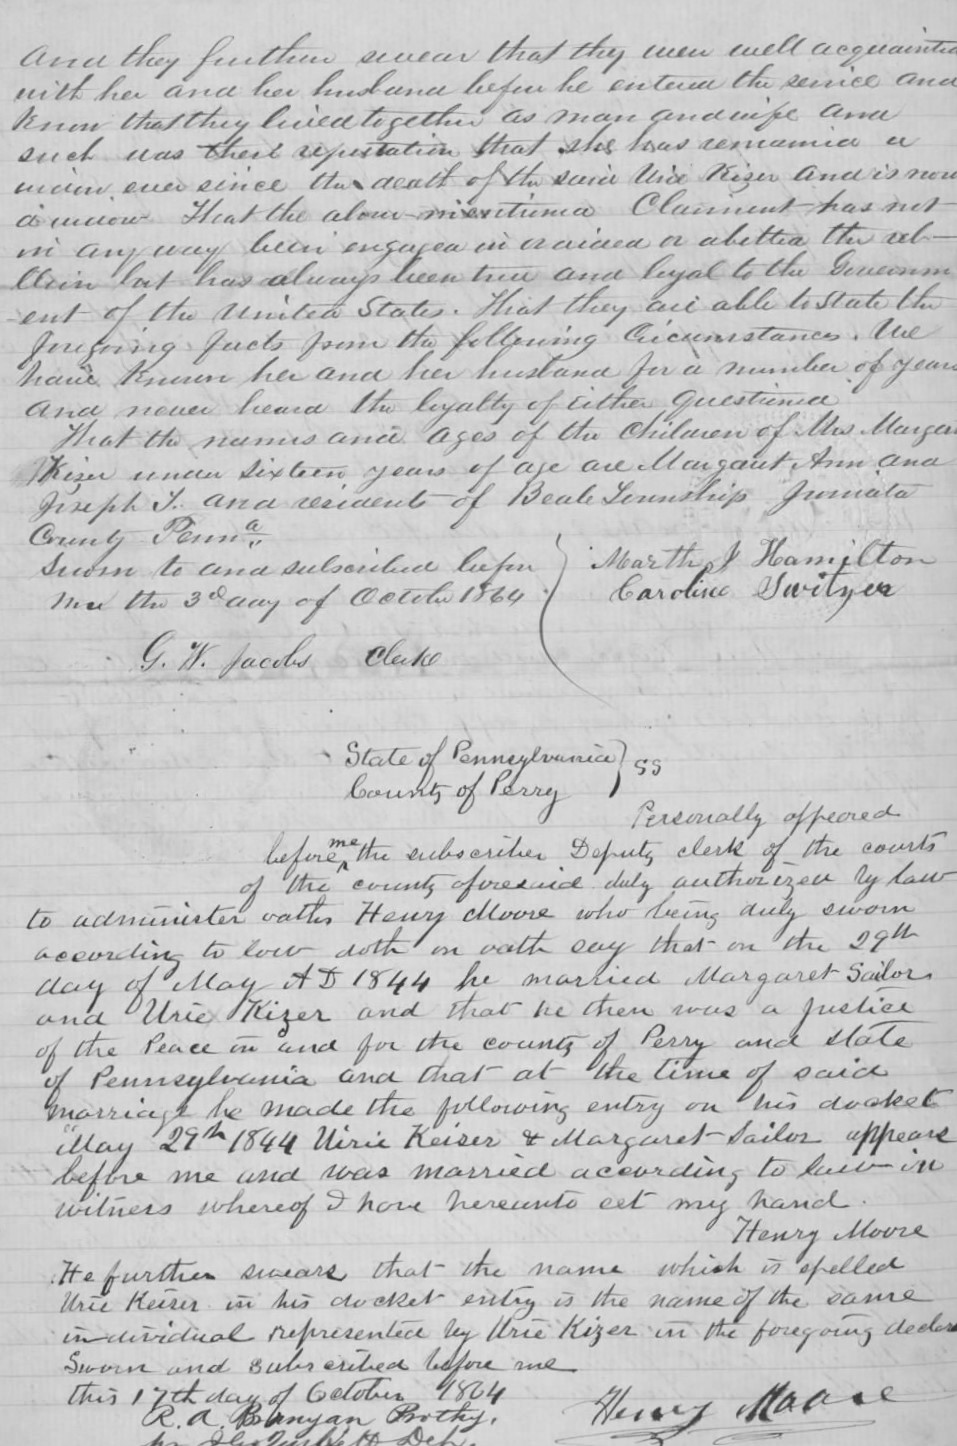 And they further swear that they were well acquainted
with her and her husband before he entered the service and
know that they lived together as man and wife and
such was their reputation that she has remained a
widow ever since the death of the said Urie Kizer and is now
a widow That the above mentioned Claiment has not
in any way been engaged in or aided or abetted the reb-
ellion but has always been true and loyal to the Governm
-ent of the United States. That they are able to State the
foregoing facts from the following Circumstances. We
have known her and her husband for a number of years
and never heard the loyalty of Either questioned
That the names and ages of the Children of Mrs Margaret
Kizer under Sixteen years of age are Margaret Ann and
Joseph T. and residents of Beale Township Juniata
County Penna
Sworn to and subscribed before
me the 3d day of October 1864
Martha J Hamilton
Caroline Switzer
G. W. Jacobs Clerk
State of Pennsylvania } SS
County of Perry
Personally appeared
before me the subscriber Deputy clerk of the courts
of the county aforesaid duly authorized by law
to administer oaths Henry Moore who being duly sworn
according to law doth on oath say that on the 29th
day of May AD 1844 he married Margaret Sailor
and Urie Kizer and that he then was a Justice
of the Peace in and for the county of Perry and state
of Pennsylvania and that at the time of said
marriage he made the following entry on his docket
"May 29th 1844 Uirie Keiser & Margaret Sailor appears
before me and was married according to law in
witness whereof I have hereunto set my hand.
Henry Moore
He further swears that the name which is spelled
Urie Keiser in his docket entry is the name of the same
individual represented by Urie Kizer in the foregoing declar
Sworn and subscribed before me
this 17th day of October 1864
Henry Moore
R. A. Bunyan Prothy.